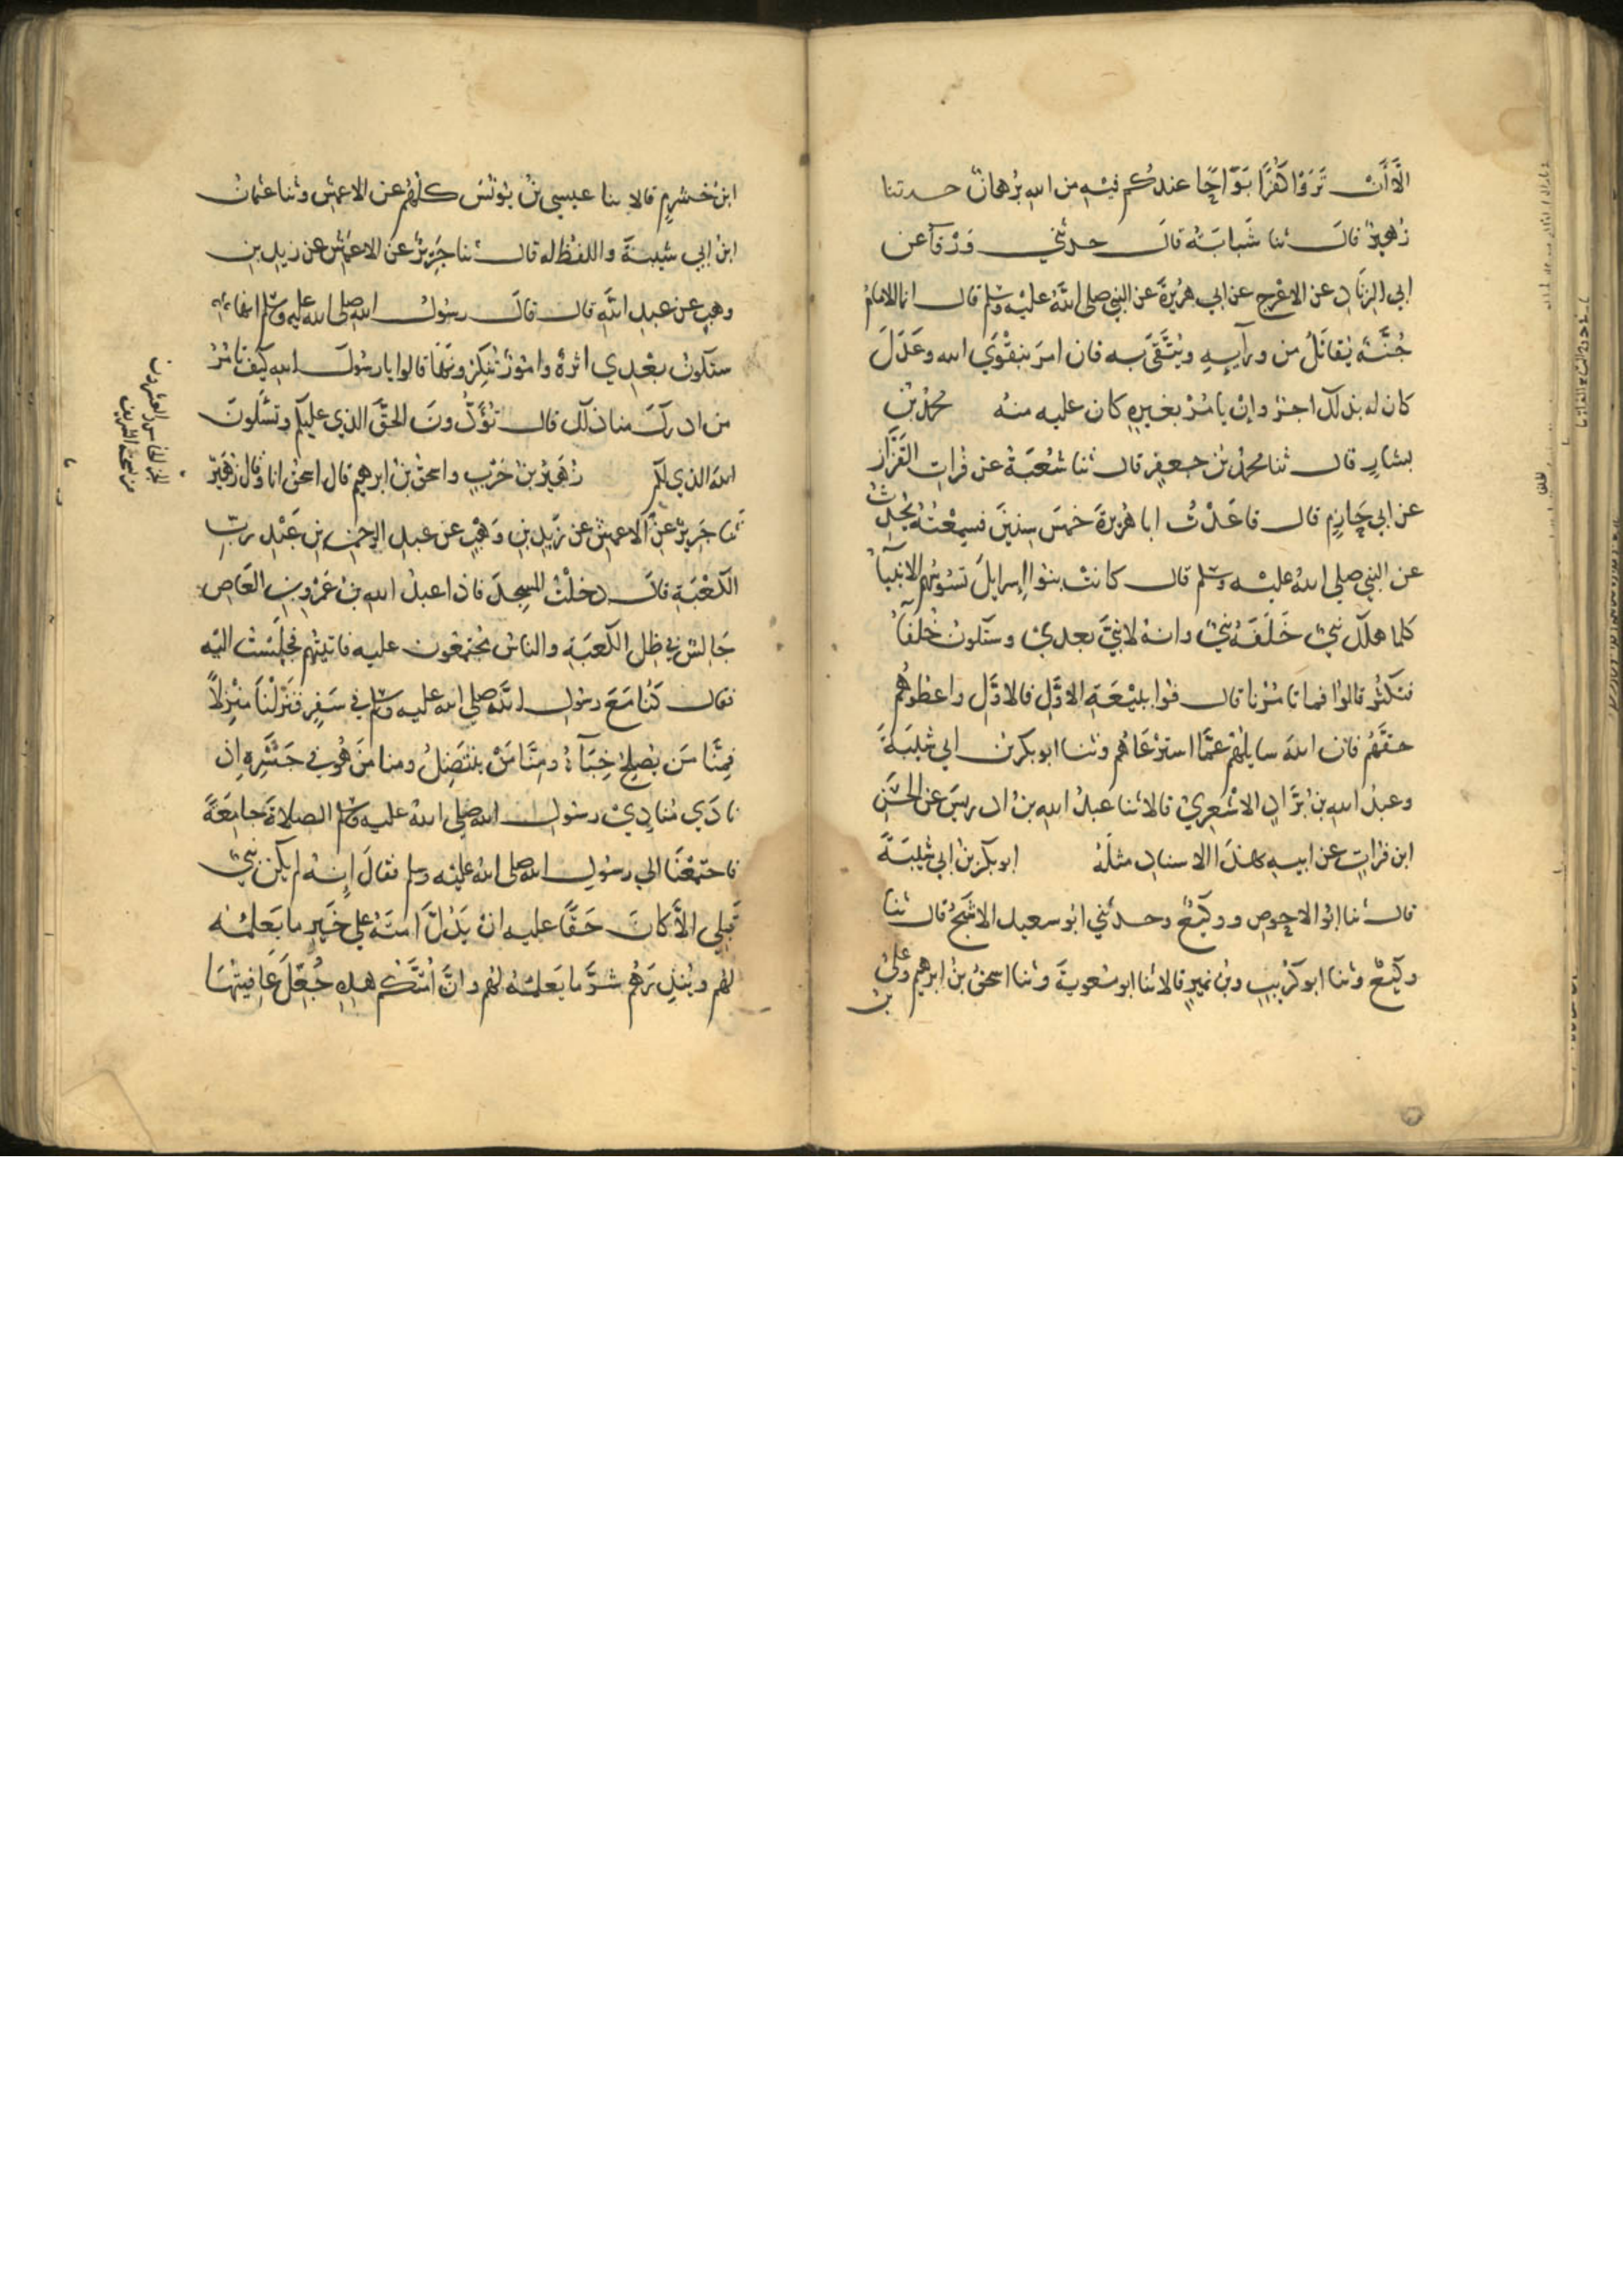 الَّا أَنْ تَرَوْا كُفْرًا بَوَّاحًا عندكم فيه من الله برهان حدثنا
زهير قال ثنا شبابة قال حدثني ورقآ عن
ابي الزناد عن الاعرج عن ابي هريرة عن النبي صلى الله عليه وسلم قال انما الامام
جُنَّة يُقاتَلُ من ورآيه ويُتَّقَى به فان امر بتقوى الله وعَدَلَ
كان له بذلك اجر وإن يامر بغيره كان عليه منه محمد بن
بشار قال ثنا محمد بن جعفر قال ثنا شعبة عن فرات القزاز
عن ابي حازم قال قاعدت ابا هريرة خمس سنين فسمعته يحدث
عن النبي صلى الله عليه وسلم قال كانت بنوا إسرايل تسوسهم الانبيآ
كلما هلك نبي خَلَفَهُ نبي وانه لا نبي بعدي وستكون خلفآ
فتكثر قالوا فما تامرنا قال فوا ببيعة الاول فالاول واعطوهم
حقهم فان الله سايلهم عما استرعاهم وثنا ابو بكر بن ابي شيبة
وعبد الله بن براد الاشعري قالا ثنا عبد الله بن ادريس عن الحسن
ابن فرات عن ابيه بهذا الاسناد مثله ابو بكر بن ابي شيبة
قال ثنا ابو الاحوص ووكيع وحدثني ابو سعيد الاشج قال ثنا
وكيع وثنا ابو كريب وبن نمير قالا ثنا ابو معوية وثنا اسحق بن ابرهيم وعلي
بن
ابن خشرم قالا ثنا عيسى بن يونس كلهم عن الاعمش وثنا عثمان
ابن ابي شيبة واللفظ له قال ثنا جرير عن الاعمش عن زيد بن
وهب عن عبد الله قال قال رسول الله صلى الله عليه وسلم انها
ستكون بعدي اثرة وامور تنكرونها قالوا يا رسول الله كيف تامر
من ادرك منا ذلك قال تؤدون الحق الذي عليكم وتسلون
الله الذي لكم زهير بن حرب واسحق بن ابرهيم قال اسحق انا وقال زهير
ثنا جرير عن الاعمش عن زيد بن وهب عن عبد الرحمن بن عبد رب
الكعبة قال دخلت المسجد فاذا عبد الله بن عمرو بن العاص
جالس في ظل الكعبة والناس مجتمعون عليه فاتيتهم فجلست اليه
فقال كنا مع رسول الله صلى الله عليه وسلم في سفر فنزلنا منزلا
فمنا من يصلح خبآءه ومنا من ينتضل ومنا من هو في جشره اذ
نادى منادي رسول الله صلى الله عليه وسلم الصلاة جامعة
فاجتمعنا الى رسول الله صلى الله عليه وسلم فقال إنه لم يكن نبي
قبلي الا كان حقا عليه ان يدل امته على خير ما يعلمه
لهم وينذرهم شر ما يعلمه لهم وان امتكم هذه جُعِلَ عافيتها